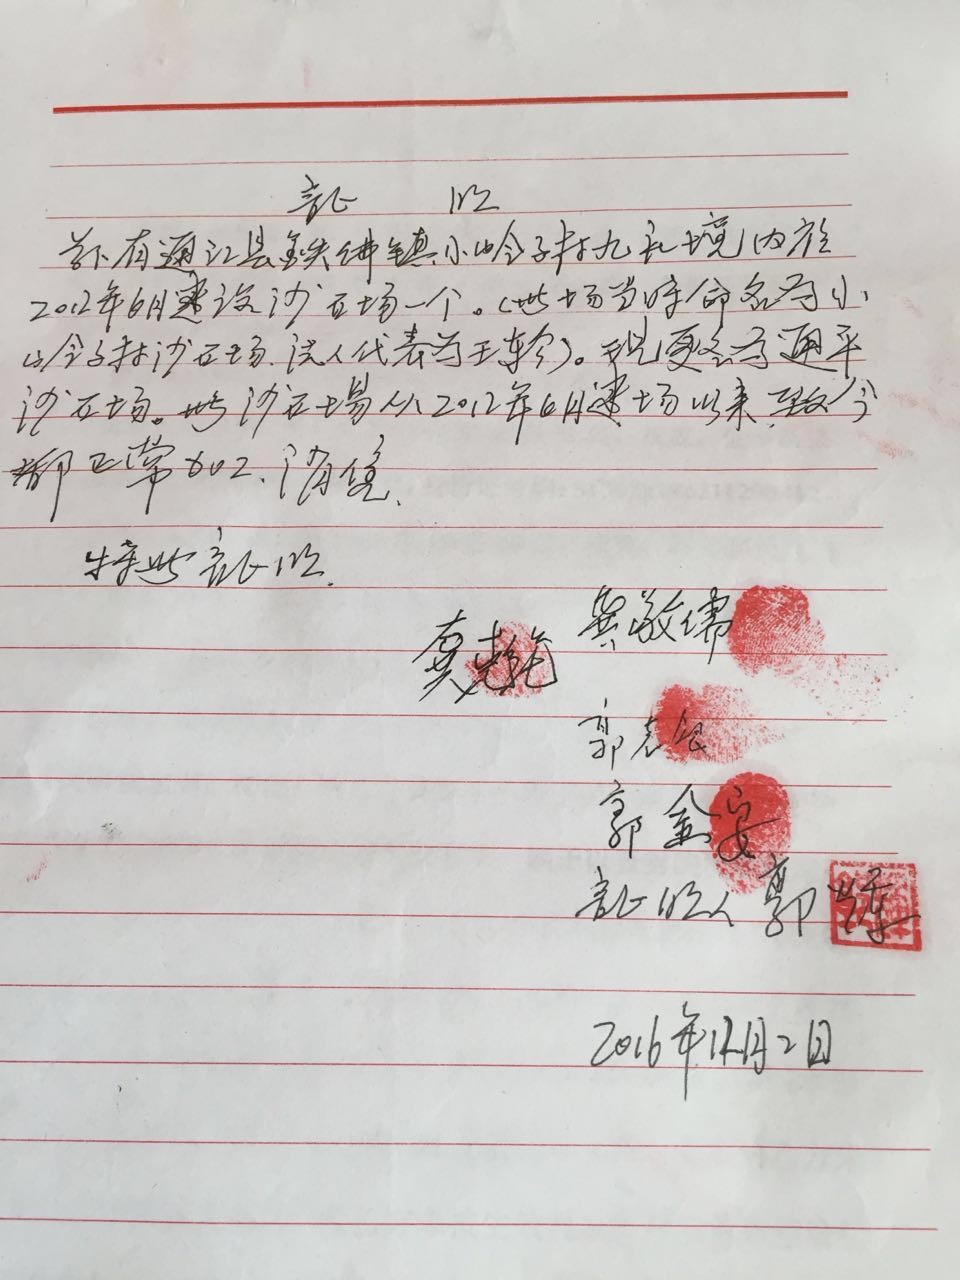 証 明
兹有通江县鉄佛镇小岭子村九社境内於
2012年6月建设沙石场一个。(此场当时命名为小
岭子村沙石场.法人代表为王)。现更名为通平
沙石场。此沙石場从2012年6月建场以来.至今
都正常加工、销售.
特此証明.
吴敬儒
郭
郭金安
証明人郭
2016年12月2日